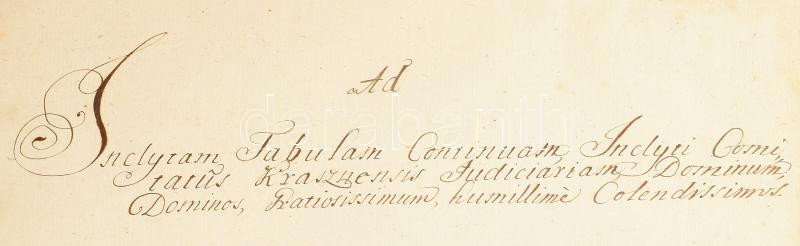 Ad
Inclytam Tabulam Continuam Inclyti Comi
tatûs Krasznensis Judiciariam, Dominum,
Dominos, Gratiosissimum, humillimè Colendissimos.
darabanth